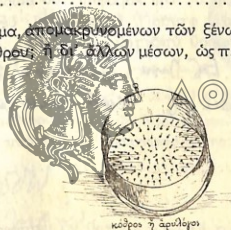 μα, ἀπομακρυνομένων τῶν ξένω
θρου; ἢ δι᾽ ἄλλων μέσων, ὡς π
ΑΘ
κόθρος ἢ ἀρυλόγος